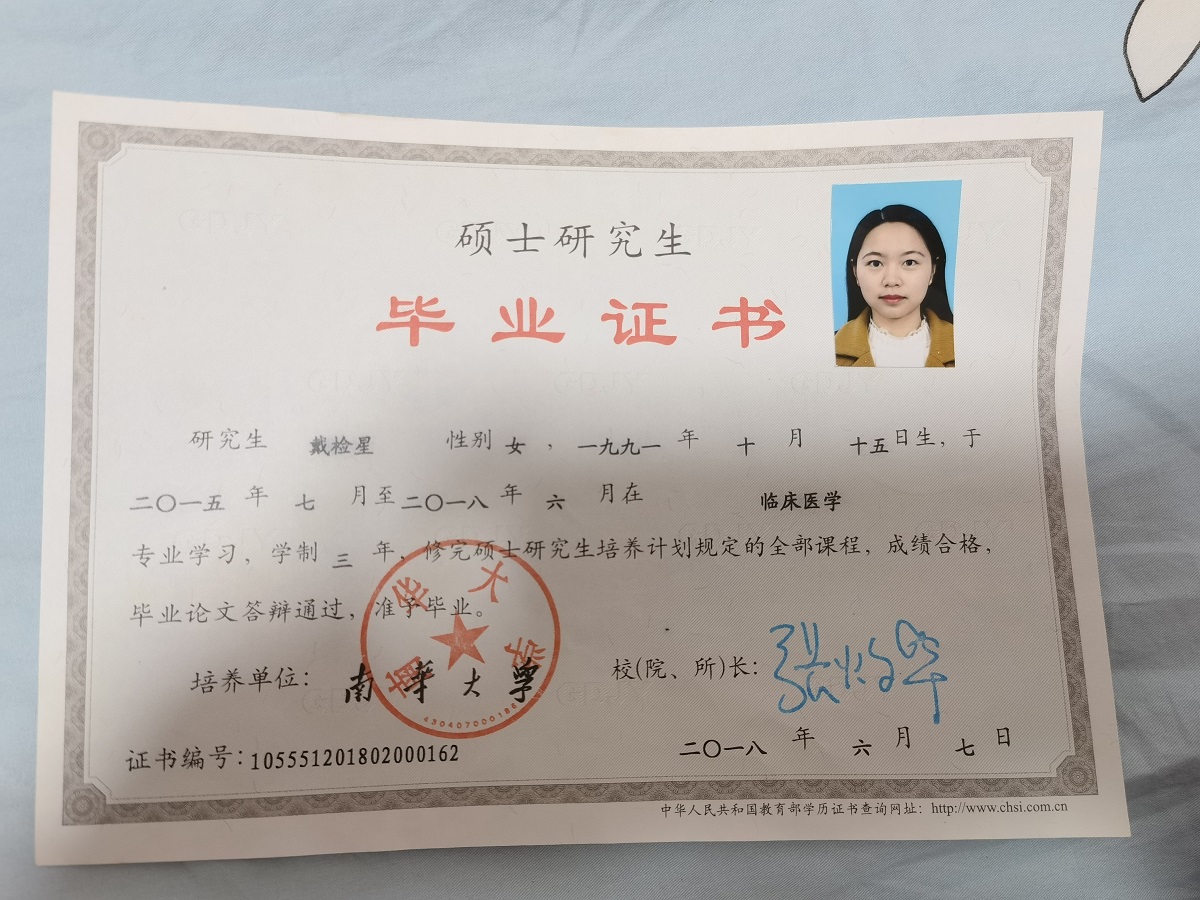 硕士研究生
毕业证书
研究生 戴检星 性别 女，一九九一 年 十 月 十五日生，于
二〇一五 年 七 月至二〇一八 年 六 月在 临床医学
专业学习，学制 三 年，修完硕士研究生培养计划规定的全部课程，成绩合格，
毕业论文答辩通过，准予毕业。
培养单位：南华大学
南华大学
校(院、所)长：
二〇一八 年 六 月 七 日
证书编号：105551201802000162
中华人民共和国教育部学历证书查询网址：http://www.chsi.com.cn